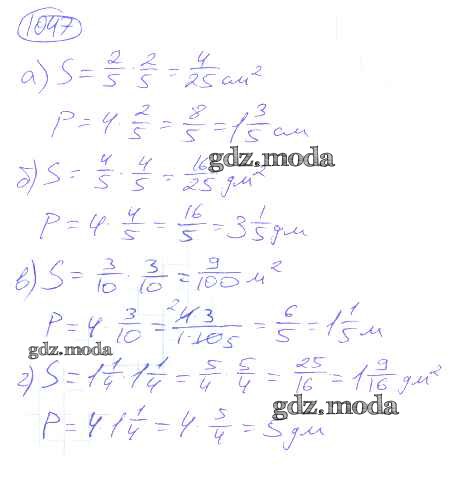 1047
а) S = 2/5 · 2/5 = 4/25 см²
P = 4 · 2/5 = 8/5 = 1 3/5 см
gdz.moda
б) S = 4/5 · 4/5 = 16/25 дм²
P = 4 · 4/5 = 16/5 = 3 1/5 дм
в) S = 3/10 · 3/10 = 9/100 м²
P = 4 · 3/10 = ²4·3/1·10 5 = 6/5 = 1 1/5 м
gdz.moda
г) S = 1 1/4 · 1 1/4 = 5/4 · 5/4 = 25/16 = 1 9/16 дм²
gdz.moda
P = 4 · 1 1/4 = 4 · 5/4 = 5 дм